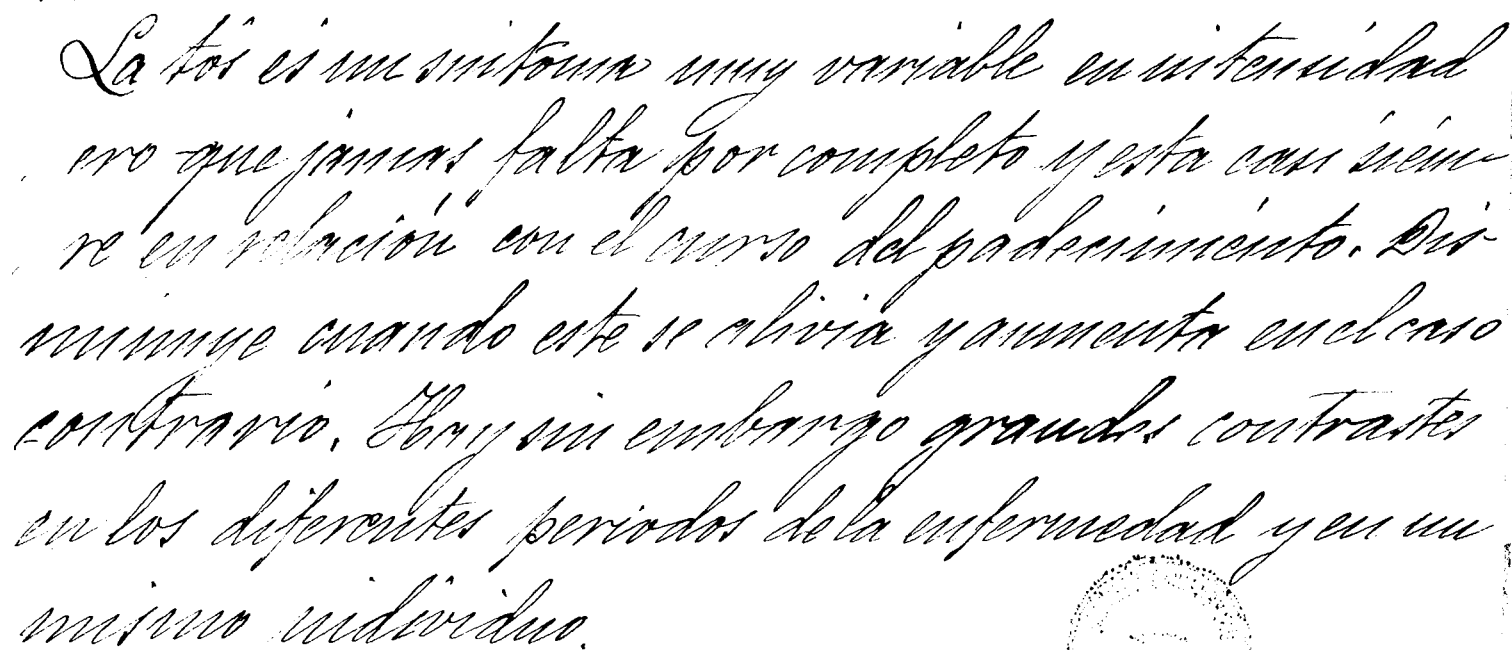 La tós és un sintoma muy variable en intensidad
ero que jamas falta por completo y esta casi siém-
re en relación con el curso del padecimiénto. Dis-
minuye cuando este se alivia y aumenta en el caso
contrario. Hay sin embargo grandes contrastes
en los diferentes periodos de la enfermedad y en un
mismo individuo.